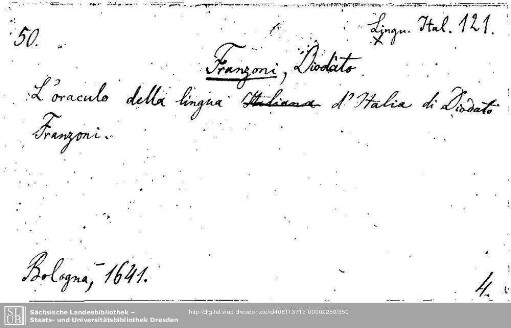 50.
Lingu. Ital. 121.
Franzoni, Diodato
L'oraculo della lingua Italiana d'Italia di Diodato
Franzoni.
Bologna, 1641.
4.
Sächsische Landesbibliothek –
Staats- und Universitätsbibliothek Dresden